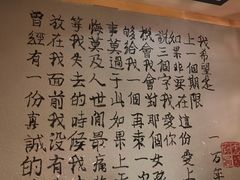 曾經有一份真誠的
放在我面前我沒有
等我失去的時候我
悔莫及人世間最痛
事莫過于此如果上
夠給我一個再來
機會我會對那個女
說三個字我愛你
如果非要在這份愛上
上一個期限
我希望是
一万年